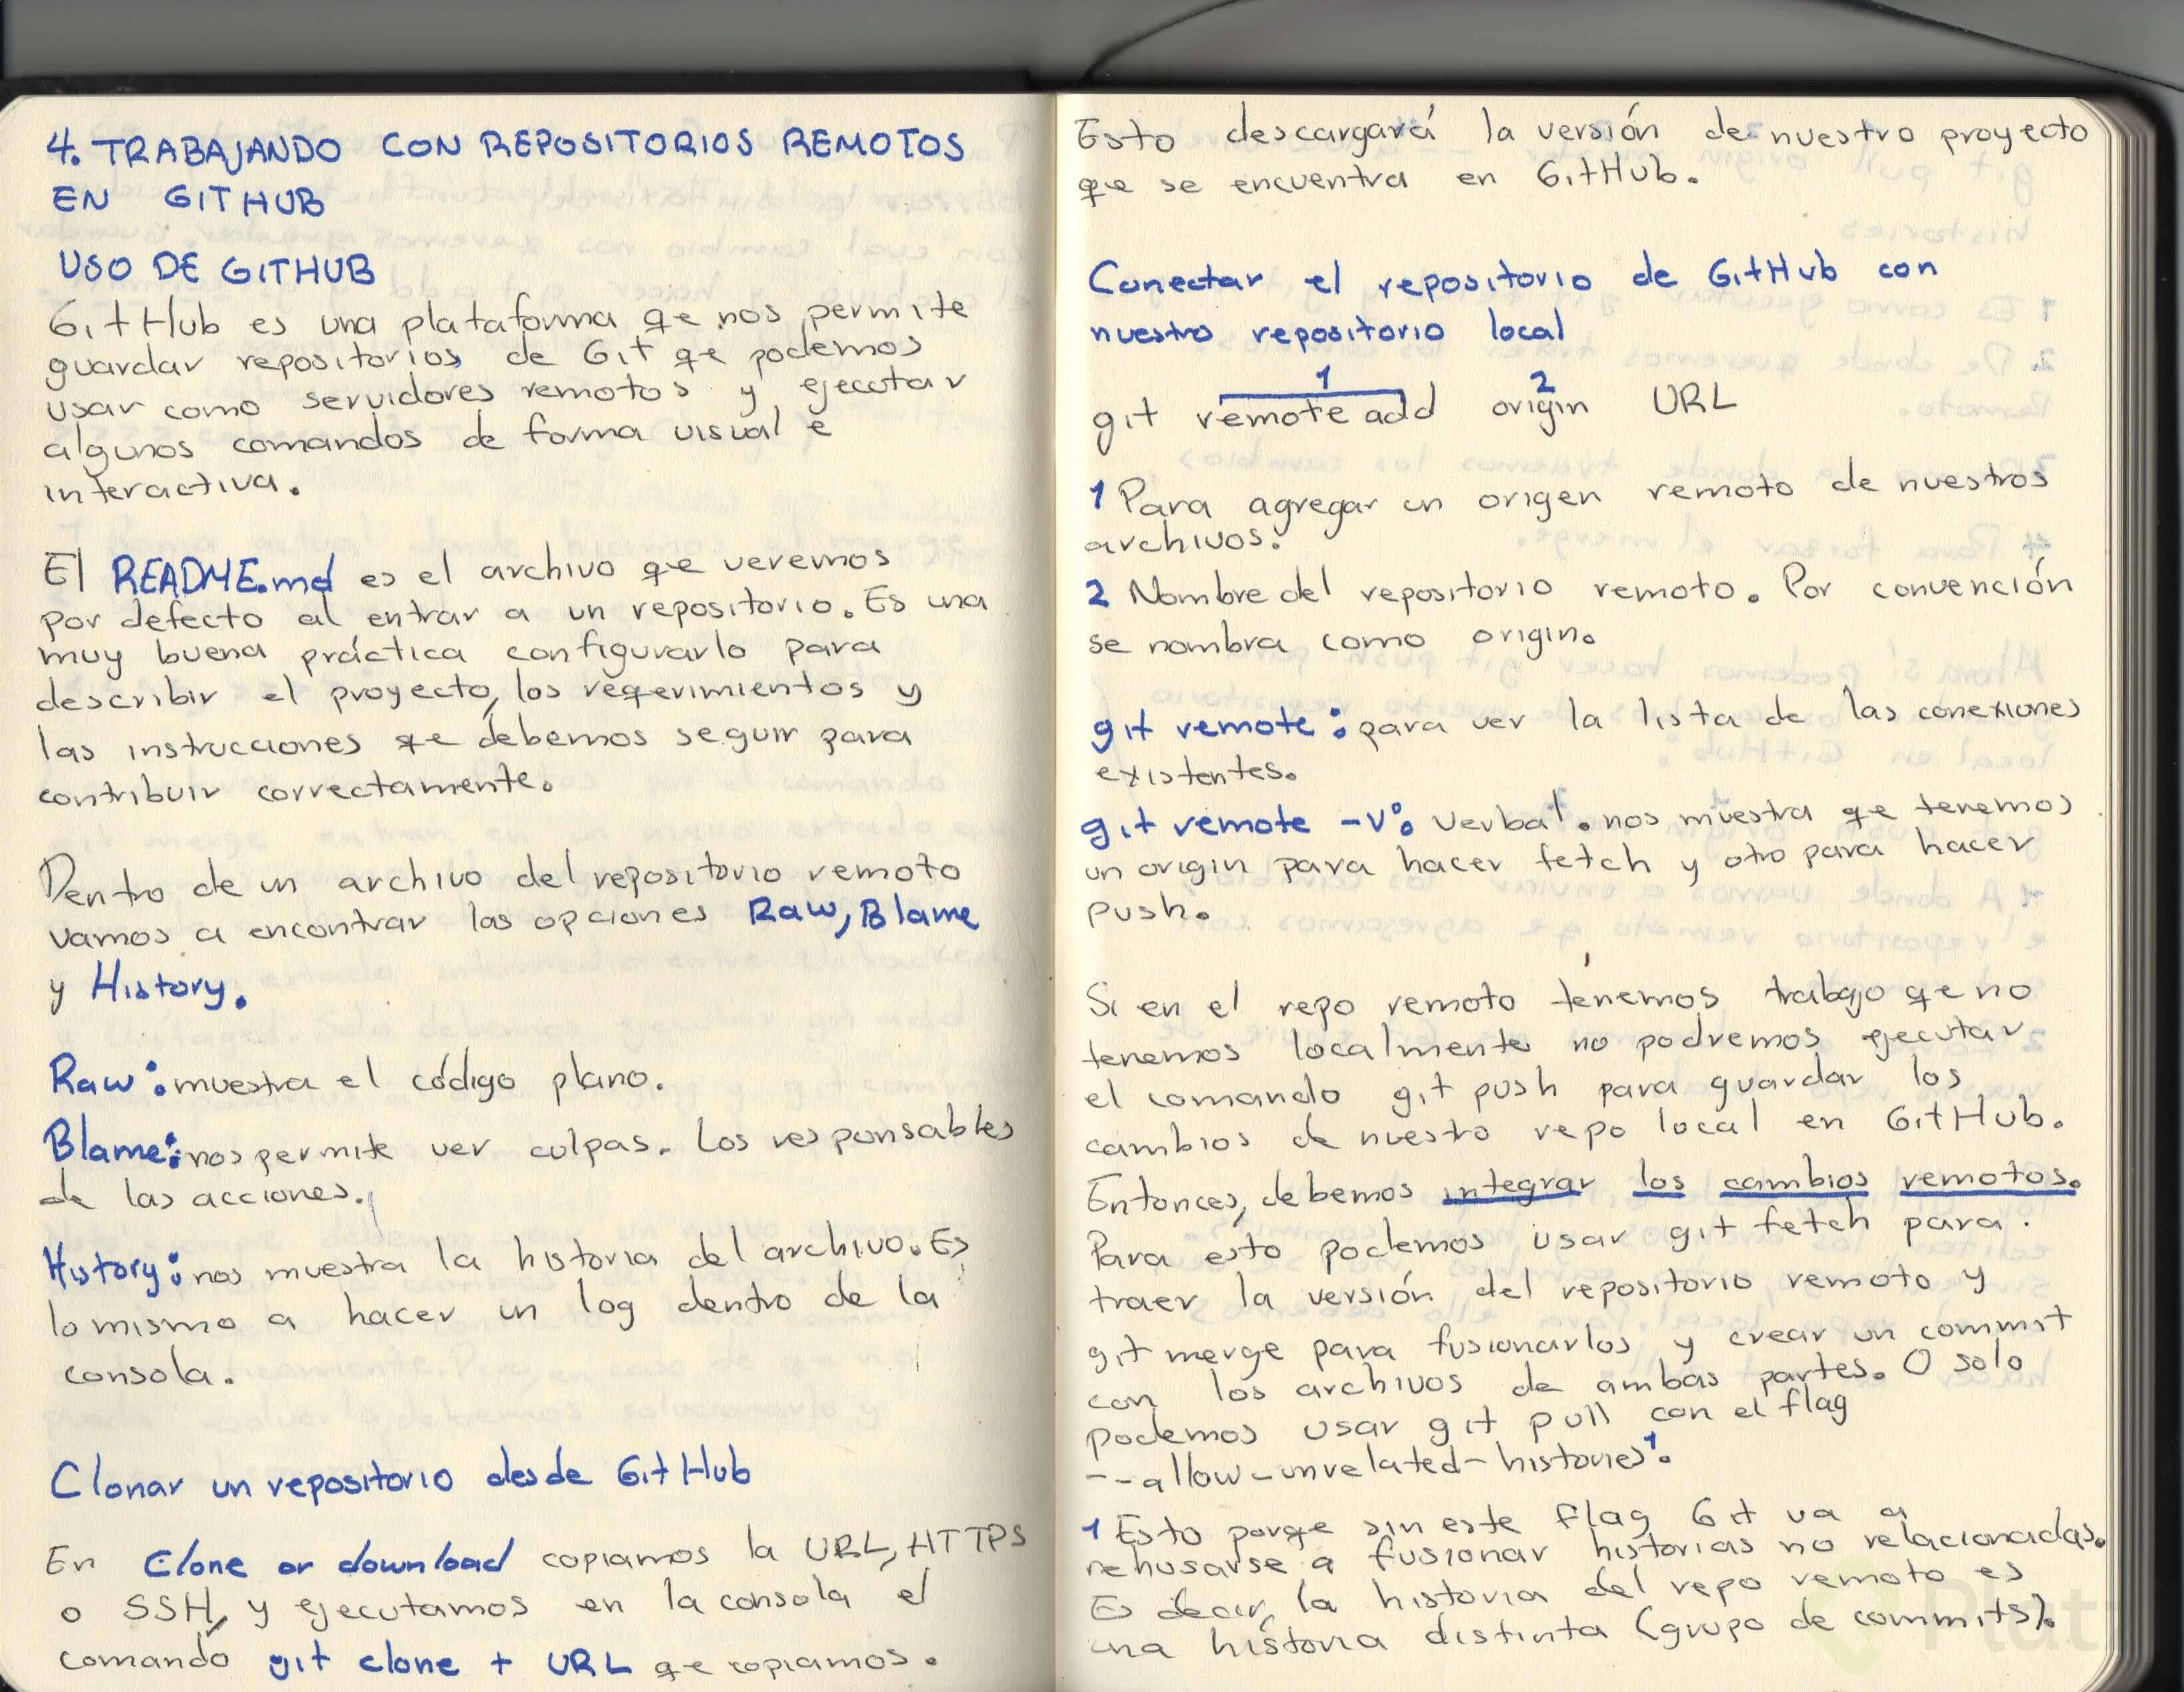 4. TRABAJANDO CON REPOSITORIOS REMOTOS
EN GITHUB
USO DE GITHUB
GitHub es una plataforma qe nos permite
guardar repositorios de Git qe podemos
usar como servidores remotos y ejecutar
algunos comandos de forma visual e
interactiva.
El README.md es el archivo qe veremos
por defecto al entrar a un repositorio. Es una
muy buena práctica configurarlo para
describir el proyecto, los reqerimientos y
las instrucciones qe debemos seguir para
contribuir correctamente.
Dentro de un archivo del repositorio remoto
vamos a encontrar las opciones Raw, Blame
y History.
Raw: muestra el código plano.
Blame: nos permite ver culpas. Los responsables
de las acciones.
History: nos muestra la historia del archivo. Es
lo mismo a hacer un log dentro de la
consola.
Clonar un repositorio desde GitHub
En Clone or download copiamos la URL, HTTPS
o SSH, y ejecutamos en la consola el
comando git clone + URL qe copiamos.
Esto descargará la versión de nuestro proyecto
qe se encuentra en GitHub.
Conectar el repositorio de GitHub con
nuestro repositorio local
1 2
git remote add origin URL
1 Para agregar un origen remoto de nuestros
archivos.
2 Nombre del repositorio remoto. Por convención
se nombra como origin.
git remote: para ver la lista de las conexiones
existentes.
git remote -v: verbal. nos muestra qe tenemos
un origin para hacer fetch y otro para hacer
push.
Si en el repo remoto tenemos trabajo qe no
tenemos localmente no podremos ejecutar
el comando git push para guardar los
cambios de nuestro repo local en GitHub.
Entonces, debemos integrar los cambios remotos.
Para esto podemos usar git fetch para
traer la versión del repositorio remoto y
git merge para fusionarlos y crear un commit
con los archivos de ambas partes. O solo
podemos usar git pull con el flag
--allow-unrelated-histories¹.
1 Esto porqe sin este flag Git va a
rehusarse a fusionar historias no relacionadas.
Es decir, la historia del repo remoto es
una historia distinta (grupo de commits).
Platz